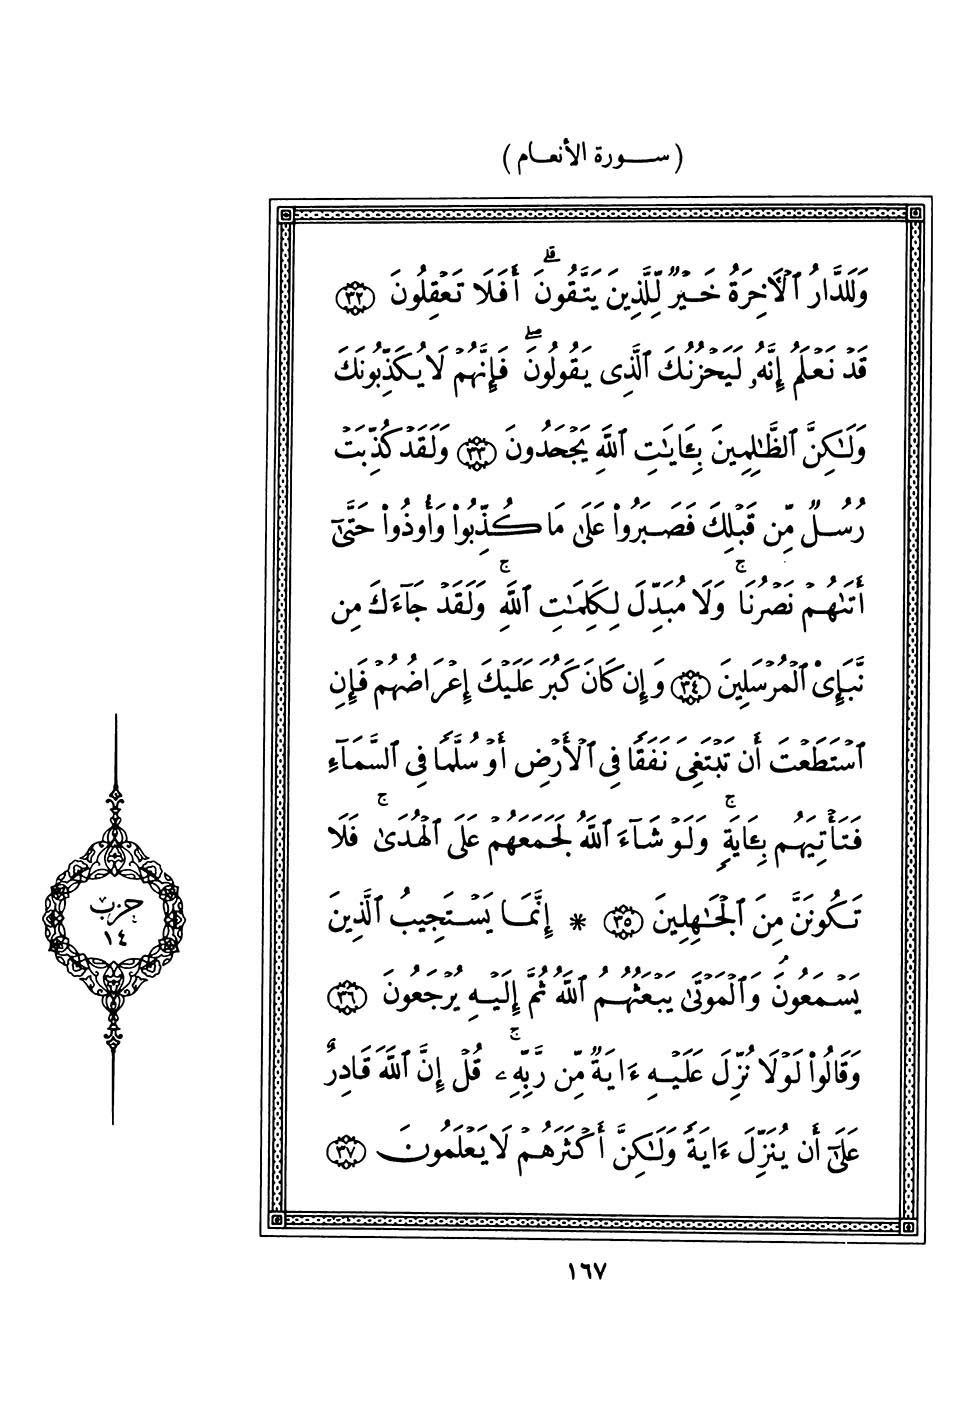 (ســورة الأنعـام)
وَلَلدَّارُ ٱلْأَخِرَةُ خَيْرٌ لِّلَّذِينَ يَتَّقُونَ ۗ أَفَلَا تَعْقِلُونَ ﴿٣٢﴾
قَدْ نَعْلَمُ إِنَّهُۥ لَيَحْزُنُكَ ٱلَّذِى يَقُولُونَ ۖ فَإِنَّهُمْ لَا يُكَذِّبُونَكَ
وَلَـٰكِنَّ ٱلظَّـٰلِمِينَ بِـَٔايَـٰتِ ٱللَّهِ يَجْحَدُونَ ﴿٣٣﴾ وَلَقَدْ كُذِّبَتْ
رُسُلٌ مِّن قَبْلِكَ فَصَبَرُوا۟ عَلَىٰ مَا كُذِّبُوا۟ وَأُوذُوا۟ حَتَّىٰٓ
أَتَىٰهُمْ نَصْرُنَا ۚ وَلَا مُبَدِّلَ لِكَلِمَـٰتِ ٱللَّهِ ۚ وَلَقَدْ جَآءَكَ مِن
نَّبَإِى۟ ٱلْمُرْسَلِينَ ﴿٣٤﴾ وَإِن كَانَ كَبُرَ عَلَيْكَ إِعْرَاضُهُمْ فَإِنِ
ٱسْتَطَعْتَ أَن تَبْتَغِىَ نَفَقًا فِى ٱلْأَرْضِ أَوْ سُلَّمًا فِى ٱلسَّمَآءِ
فَتَأْتِيَهُم بِـَٔايَةٍ ۚ وَلَوْ شَآءَ ٱللَّهُ لَجَمَعَهُمْ عَلَى ٱلْهُدَىٰ ۚ فَلَا
تَكُونَنَّ مِنَ ٱلْجَـٰهِلِينَ ﴿٣٥﴾ * إِنَّمَا يَسْتَجِيبُ ٱلَّذِينَ
يَسْمَعُونَ ۘ وَٱلْمَوْتَىٰ يَبْعَثُهُمُ ٱللَّهُ ثُمَّ إِلَيْهِ يُرْجَعُونَ ﴿٣٦﴾
وَقَالُوا۟ لَوْلَا نُزِّلَ عَلَيْهِ ءَايَةٌ مِّن رَّبِّهِۦ ۚ قُلْ إِنَّ ٱللَّهَ قَادِرٌ
عَلَىٰٓ أَن يُنَزِّلَ ءَايَةً وَلَـٰكِنَّ أَكْثَرَهُمْ لَا يَعْلَمُونَ ﴿٣٧﴾
حزب
١٤
١٦٧